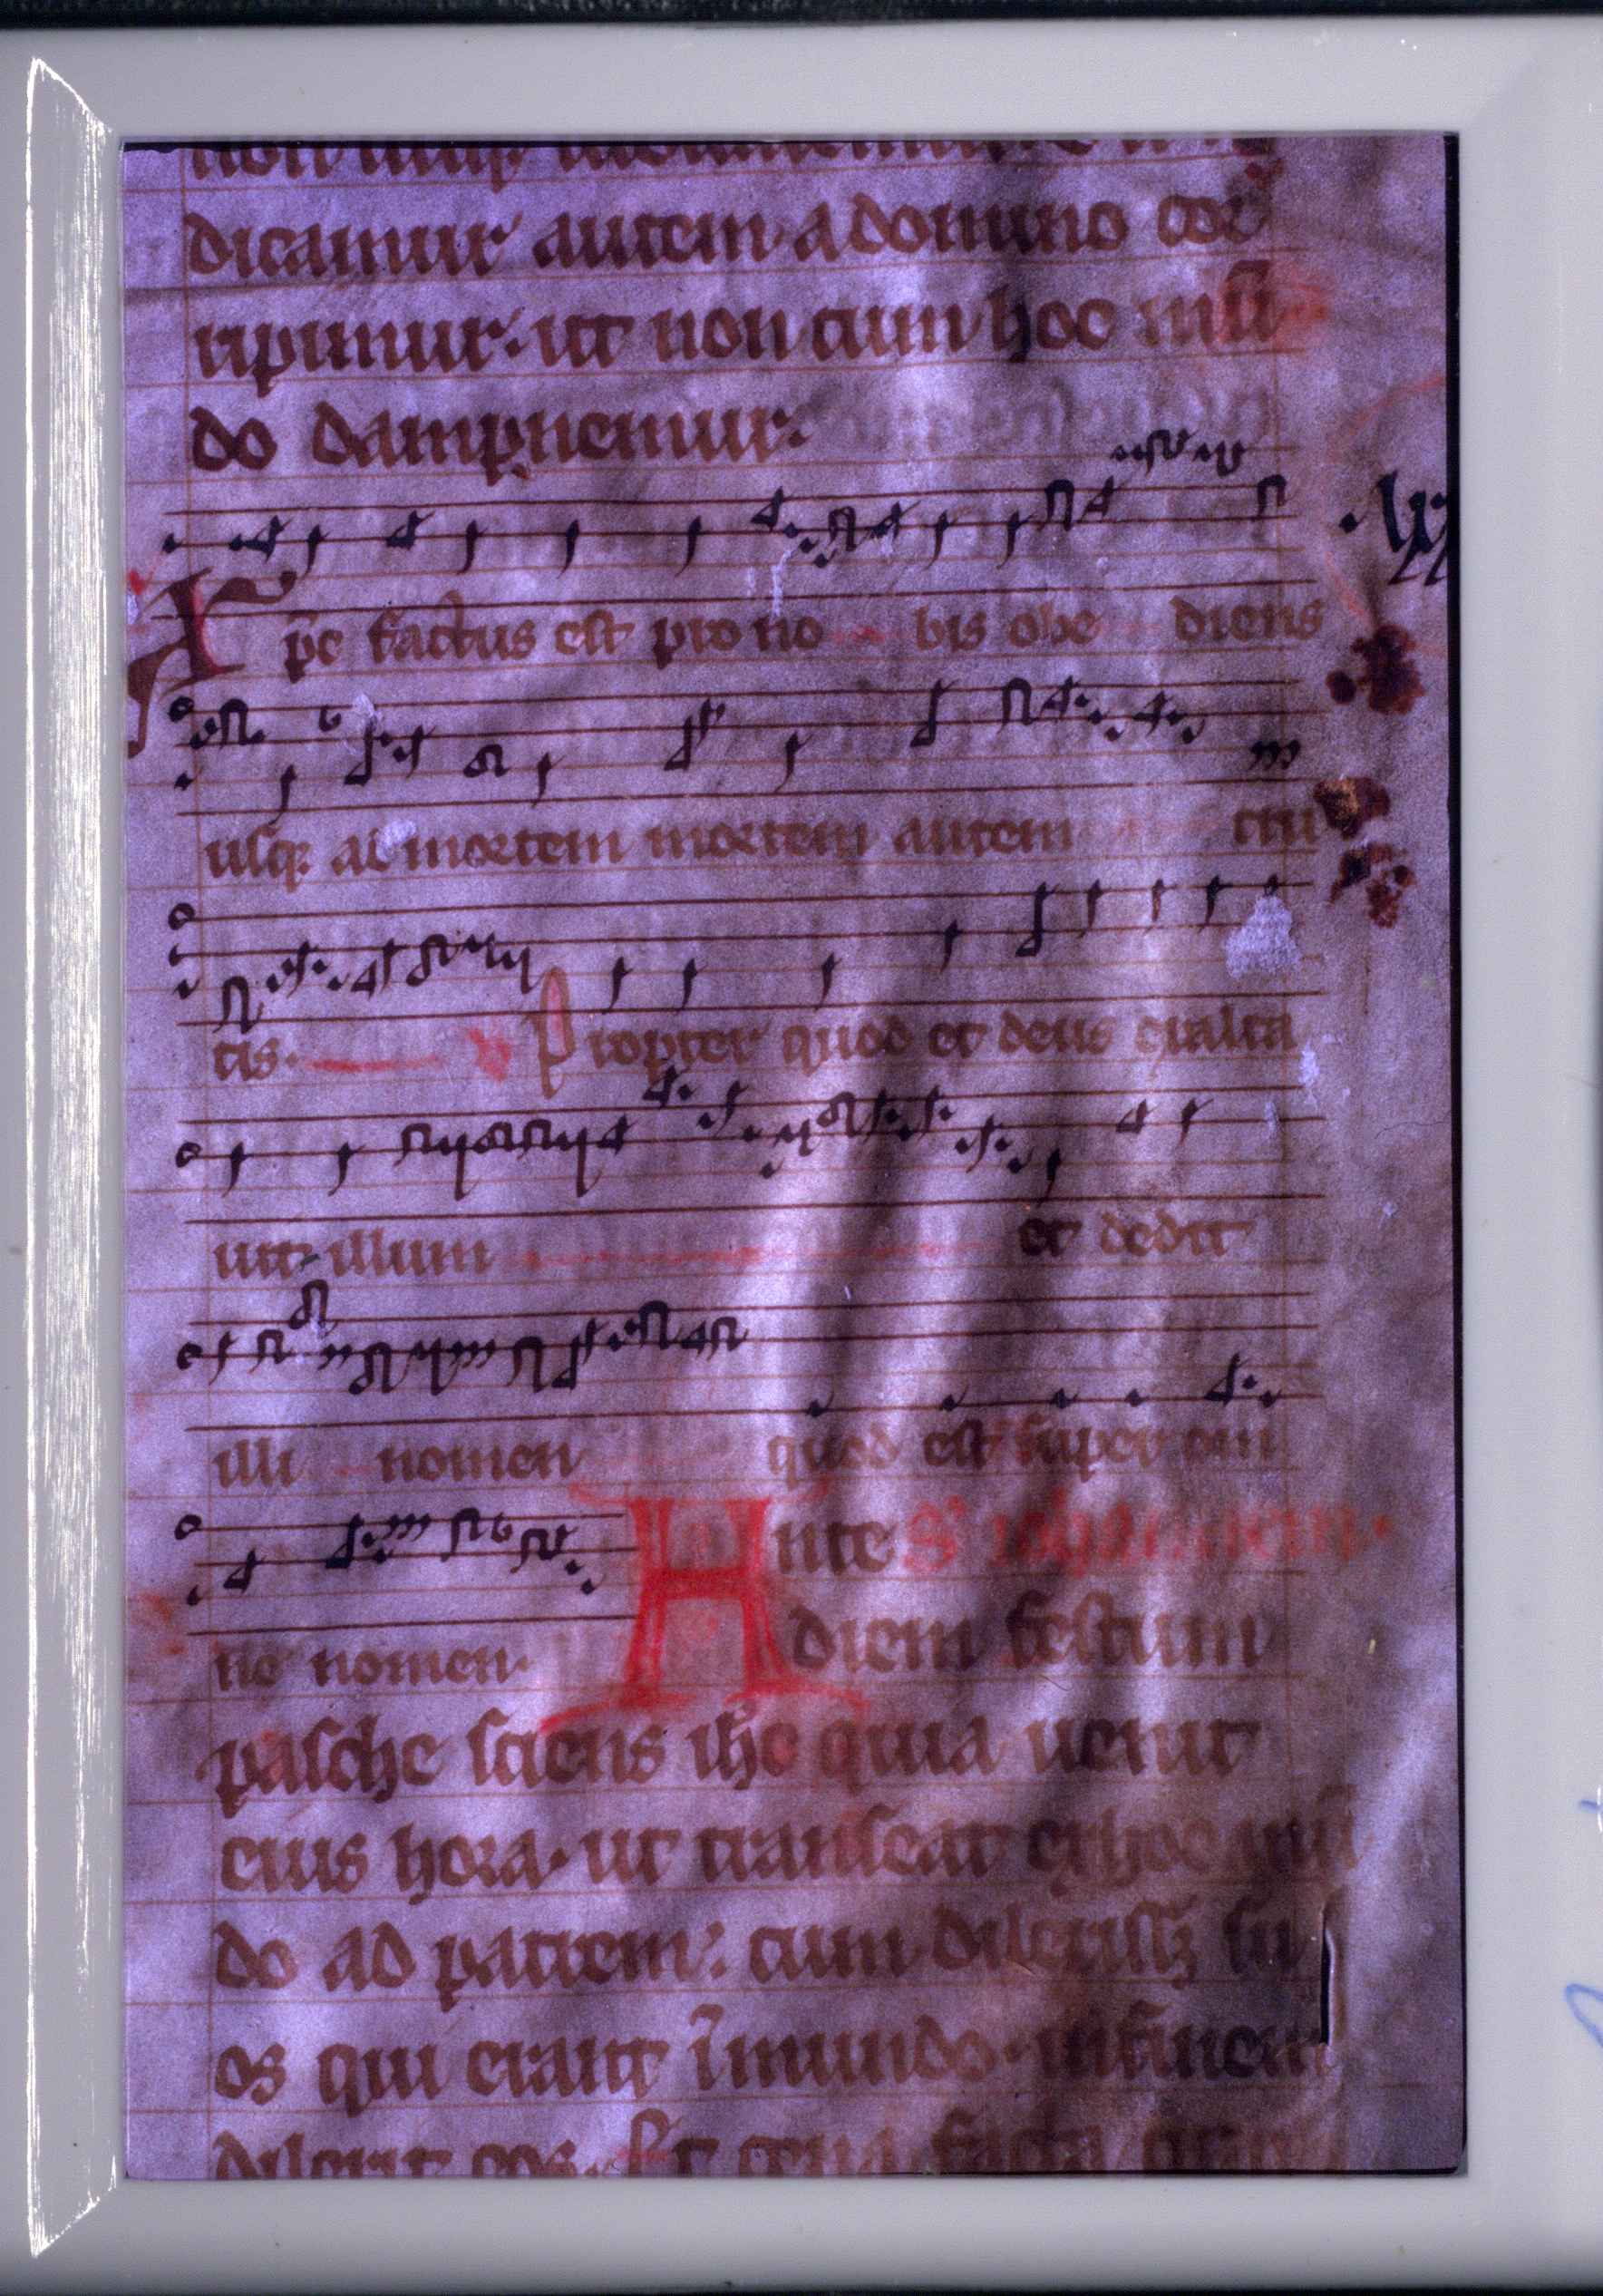 dicamur autem a domino cor
ripimur. ut non cum hoc mū
do dampnemur.
Xp̄c factus est pro no bis obe diens
usq; ad mortem mortem autem cru
cis. v Propter quod et deus exalta
uit illum et dedit
illi nomen quod est super om
ne nomen. Ante
diem festum
pasche sciens ihc quia uenit
eius hora. ut transeat ex hoc mū
do ad patrem. cum dilexisset su
os qui erant ī mundo. in finem
dilexit eos. Et cena facta